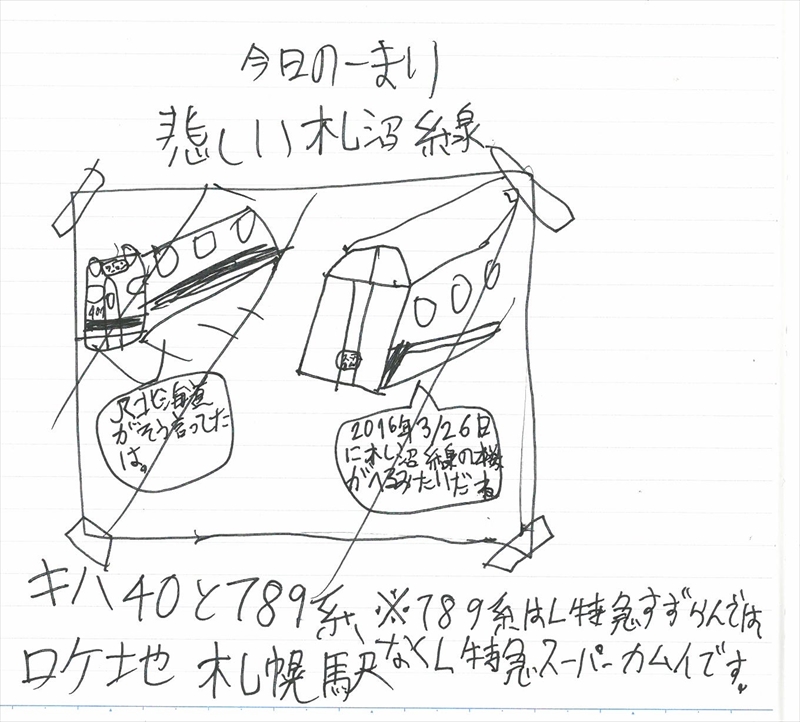 今日の一まり
悲しい札沼線
401
JR北海道
がそう言ってた
は。
2016年3/26日
に札沼線の本様
がへるみたいだね
キハ40と789系
※789系はL特急すずらんでは
なくL特急スーパーカムイです。
ロケ地 札幌駅